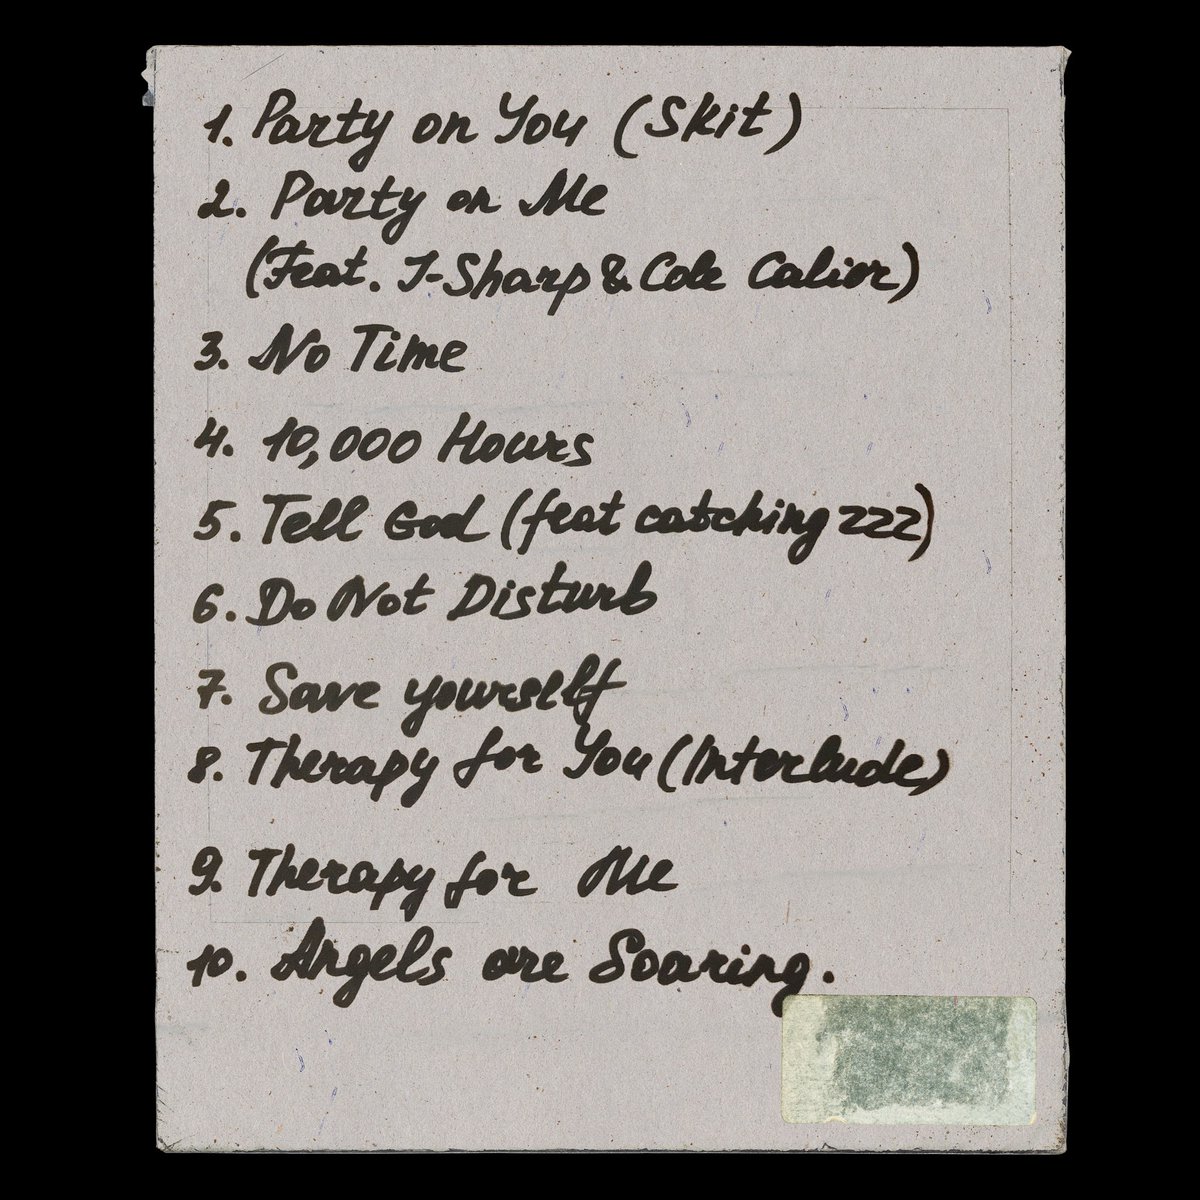 1. Party on You (Skit)
2. Party on Me
(Feat. J-Sharp & Cole Calier)
3. No Time
4. 10,000 Hours
5. Tell God (feat catching zzz)
6. Do Not Disturb
7. Save yourself
8. Therapy for You (Interlude)
9. Therapy for Me
10. Angels are Soaring.